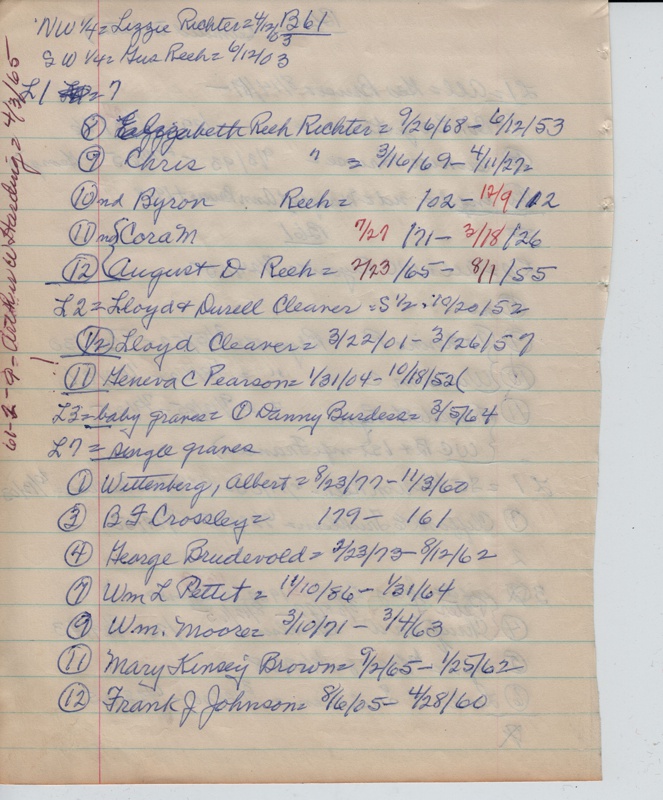 NW 1/4 = Lizzie Richter = 4/12/03 B61
SW 1/4 = Gus Reeh = 6/12/03
L1 = ?
8 Elizabeth Reeh Richter = 9/26/68 - 6/12/53
9 Chris " = 3/16/69 - 4/11/27
10 nd Byron Reeh = /02 - 12/9/12
11 nd Cora M 7/27/71 - 3/18/26
12 August D Reeh = 2/23/65 - 8/1/55
L2 = Lloyd & Durell Cleaver = S 1/2 = 10/20/52
1/2 Lloyd Cleaver = 3/22/01 - 3/26/57
11 Geneva C Pearson = 1/31/04 - 10/18/52 (
L3 = baby graves = 1 Danny Burdess = 3/5/64
L7 = single graves
1 Wittenberg, Albert = 8/23/77 - 11/3/60
3 B F Crossley = 179 - 161
4 George Brudevold = 2/23/73 - 8/12/62
7 Wm L Pettet = 11/10/86 - 1/31/64
9 Wm. Moore = 3/10/71 - 3/4/63
11 Mary Kinsey Brown = 9/2/65 - 1/25/62
12 Frank J Johnson = 8/6/05 - 4/28/60
61-2-9 = Arthur W Harding = 4/3/65